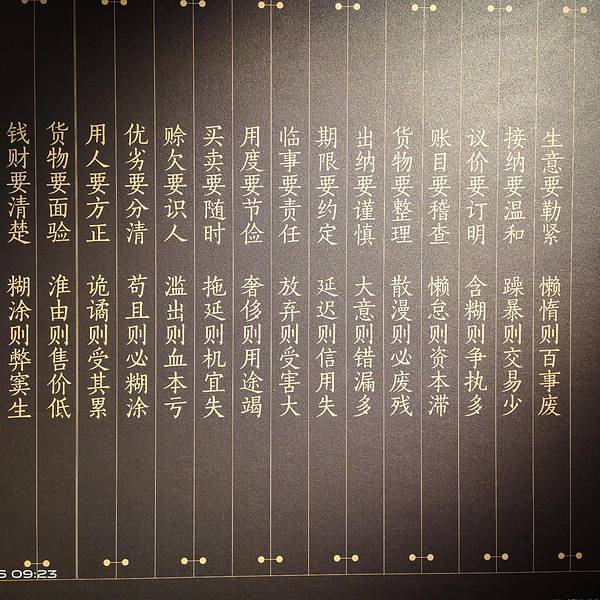 生意要勤紧 懒惰则百事废
接纳要温和 躁暴则交易少
议价要订明 含糊则争执多
账目要稽查 懒怠则资本滞
货物要整理 散漫则必废残
出纳要谨慎 大意则错漏多
期限要约定 延迟则信用失
临事要责任 放弃则受害大
用度要节俭 奢侈则用途竭
买卖要随时 拖延则机宜失
赊欠要识人 滥出则血本亏
优劣要分清 苟且则必糊涂
用人要方正 诡谲则受其累
货物要面验 滥由则售价低
钱财要清楚 糊涂则弊窦生
09:23